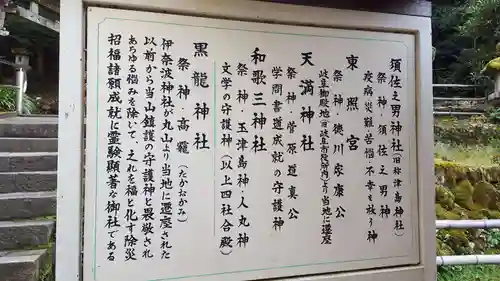 須佐之男神社（旧称津島神社）
祭神・須佐之男神
疫病災難・苦悩・不幸を救う神
東照宮
祭神・徳川家康公
岐阜御殿地（旧岐阜市役所内）より当地に遷座
天満神社
祭神・菅原道真公
学問・書道成就の守護神
和歌三神社
祭神・玉津島神・人丸神
文学の守護神（以上四社合殿）
黒龍神社
祭神・高龗（たかおかみ）
伊奈波神社が丸山より当地に遷座された
以前から当山鎮護の守護神と畏敬され
あらゆる悩みを除いて、これを福と化す除災
招福諸願成就に霊験顕著な御社である